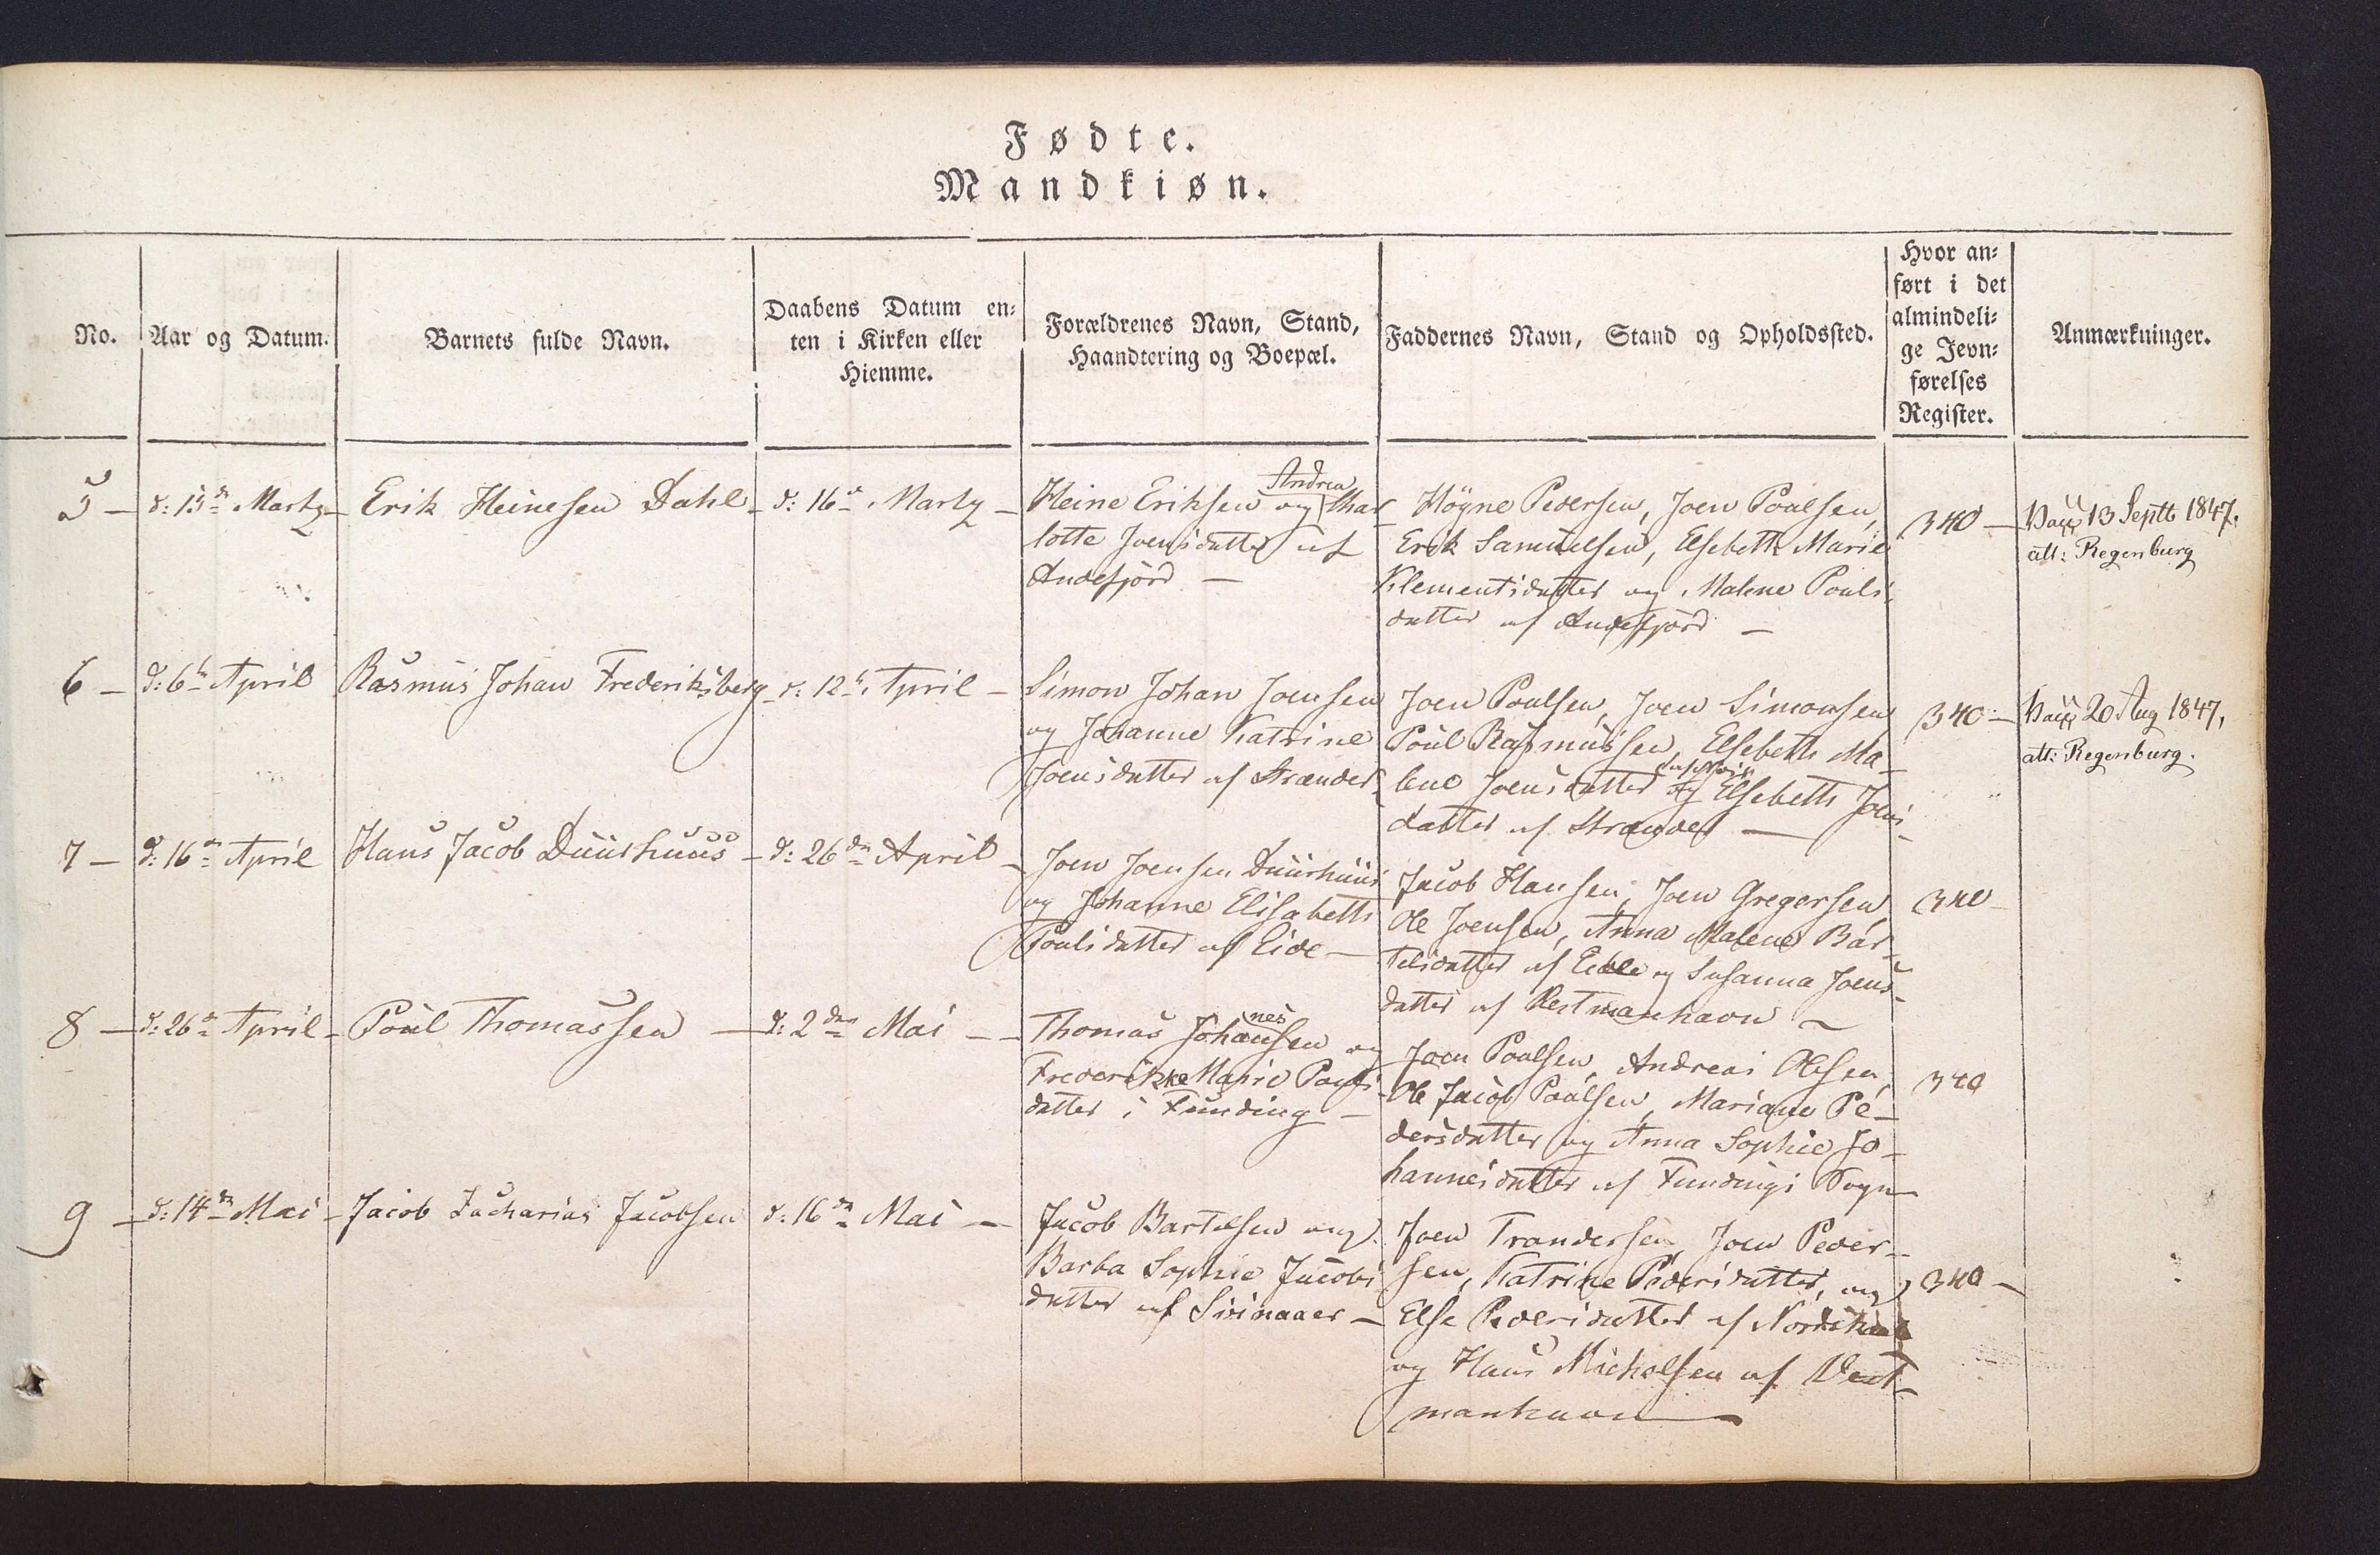 Fødte.
Mandkiøn.
No.
Aar og Datum.
Barnets fulde Navn.
Daabens Datum en=
ten i Kirken eller
Hiemme.
Forældrenes Navn, Stand,
Haandtering og Boepæl.
Faddernes Navn, Stand og Opholdssted.
Hvor an=
ført i det
almindeli=
ge Jevn=
førelses
Register.
Anmærkninger.
5 –
d: 15de Marty –
Erik Heinesen Dahl –
d: 16de Marty –
Andrea
Heine Eriksen og Char
lotte Joensdatter af
Andefjørd –
Høgne Pedersen, Joen Poulsen,
Erik Samuelsen, Elsebeth Marie
Klementsdatter og Malene Pouls-
datter af Andefjørd –
340 –
Vacc 13 Septb 1847.
att: Regenburg
6 –
d: 6te April
Rasmus Johan Frederiksberg –
d: 12te April –
Simon Johan Joensen
og Johanne Katrine
Joensdatter af Strænder
Joen Poulsen, Joen Simonsen
Poul Rasmussen, Elsebeth Ma-
lene Joensdatter og Elsebeth Joens-
datter af Strænder –
340 –
Vacc 20 Aug 1847,
att: Regenburg.
7 –
d: 16de April
Hans Jacob Duurhuus –
d: 26de April –
Joen Joensen Duurhuus
og Johanne Elisabeth
Poulsdatter af Eide –
Jacob Hansen, Joen Gregersen
Ole Joensen, Anna Malene Bar-
telsdatter af Eide og Susanna Joens-
datter af Vestmanhavn –
340
8 –
d: 26de April –
Poul Thomassen –
d: 2den Mai –
nes
Thomas Johansen og
Frederikke Marie Pouls
datter i Funding –
Joen Poulsen, Andreas Olesen,
Ole Jacob Poulsen, Mariane Pe-
dersdatter og Anna Sophie Jo-
hannesdatter af Fundings Sogn
340
9 –
d: 14de Mai –
Jacob Zacharias Jacobsen
d: 16de Mai –
Jacob Bartelsen og
Barba Sophie Jacobs
datter af Svinaaer –
Joen Trondersen, Joen Peder-
sen, Katrine Pedersdatter, og
Else Pedersdatter af
og Hans Michelsen af Vest-
manhavn –
340 –